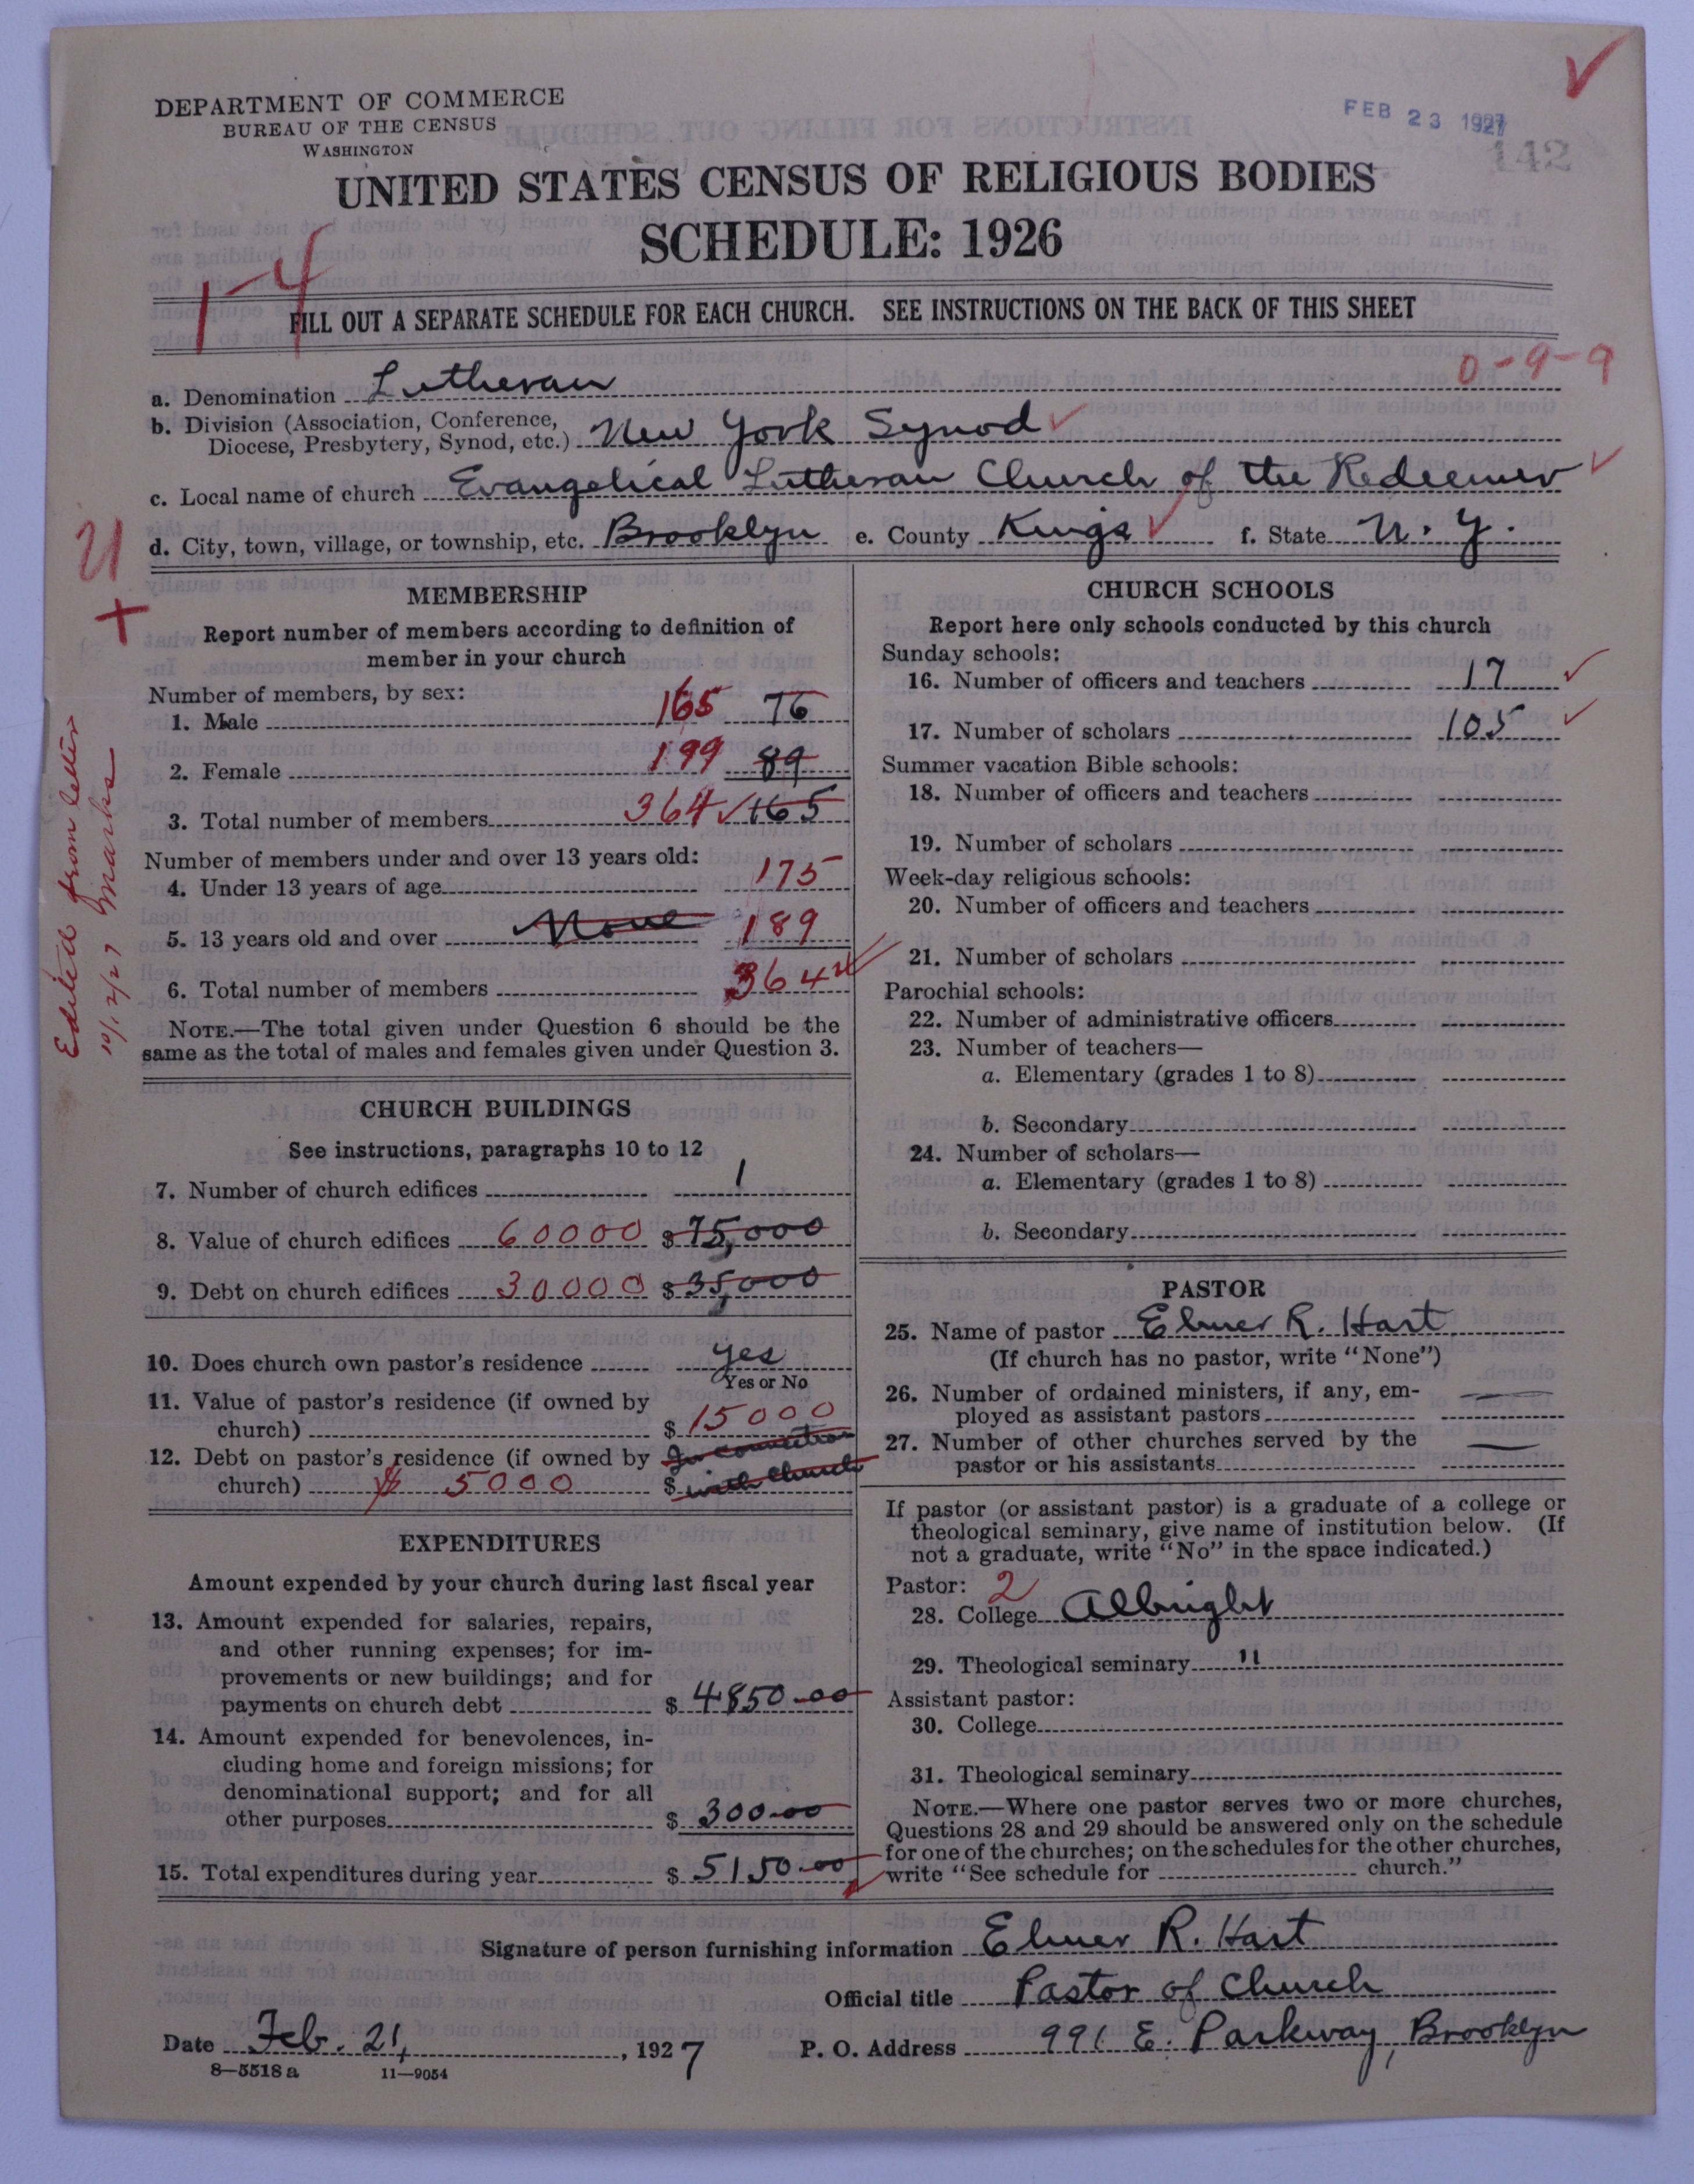 DEPARTMENT OF COMMERCE
BUREAU OF THE CENSUS
WASHINGTON
FEB 23 1927
142
UNITED STATES CENSUS OF RELIGIOUS BODIES
SCHEDULE: 1926
1-4
FILL OUT A SEPARATE SCHEDULE FOR EACH CHURCH. SEE INSTRUCTIONS ON THE BACK OF THIS SHEET
0-9-9
a. Denomination Lutheran
b. Division (Association, Conference,
Diocese, Presbytery, Synod, etc.) New York Synod
c. Local name of church Evangelical Lutheran Church of the Redeemer
d. City, town, village, or township, etc. Brooklyn e. County Kings f. State N. Y.
Edited from letter
10/12/27 Marks
MEMBERSHIP
Report number of members according to definition of
member in your church
Number of members, by sex:
1. Male 165 76
2. Female 199 89
3. Total number of members 364 165
Number of members under and over 13 years old:
4. Under 13 years of age 175
5. 13 years old and over None 189
6. Total number of members 364
NOTE.—The total given under Question 6 should be the
same as the total of males and females given under Question 3.
CHURCH BUILDINGS
See instructions, paragraphs 10 to 12
7. Number of church edifices 1
8. Value of church edifices 60000 $ 75,000
9. Debt on church edifices 30000 $ 35,000
10. Does church own pastor's residence yes
Yes or No
11. Value of pastor's residence (if owned by
church) $ 15000
12. Debt on pastor's residence (if owned by In connection
church) $ 5000 $ with Church
EXPENDITURES
Amount expended by your church during last fiscal year
13. Amount expended for salaries, repairs,
and other running expenses; for im-
provements or new buildings; and for
payments on church debt $ 4850.00
14. Amount expended for benevolences, in-
cluding home and foreign missions; for
denominational support; and for all
other purposes $ 300.00
15. Total expenditures during year $ 5150.00
CHURCH SCHOOLS
Report here only schools conducted by this church
Sunday schools:
16. Number of officers and teachers 17
17. Number of scholars 105
Summer vacation Bible schools:
18. Number of officers and teachers
19. Number of scholars
Week-day religious schools:
20. Number of officers and teachers
21. Number of scholars
Parochial schools:
22. Number of administrative officers
23. Number of teachers—
a. Elementary (grades 1 to 8)
b. Secondary
24. Number of scholars—
a. Elementary (grades 1 to 8)
b. Secondary
PASTOR
25. Name of pastor Elmer R. Hart
(If church has no pastor, write "None")
26. Number of ordained ministers, if any, em-
ployed as assistant pastors —
27. Number of other churches served by the
pastor or his assistants —
If pastor (or assistant pastor) is a graduate of a college or
theological seminary, give name of institution below. (If
not a graduate, write "No" in the space indicated.)
Pastor: 2
28. College Albright
29. Theological seminary "
Assistant pastor:
30. College
31. Theological seminary
NOTE.—Where one pastor serves two or more churches,
Questions 28 and 29 should be answered only on the schedule
for one of the churches; on the schedules for the other churches,
write "See schedule for church."
Signature of person furnishing information Elmer R. Hart
Official title Pastor of Church
Date Feb. 21, 1927 P. O. Address 991 E. Parkway, Brooklyn
8—5518 a 11—9054